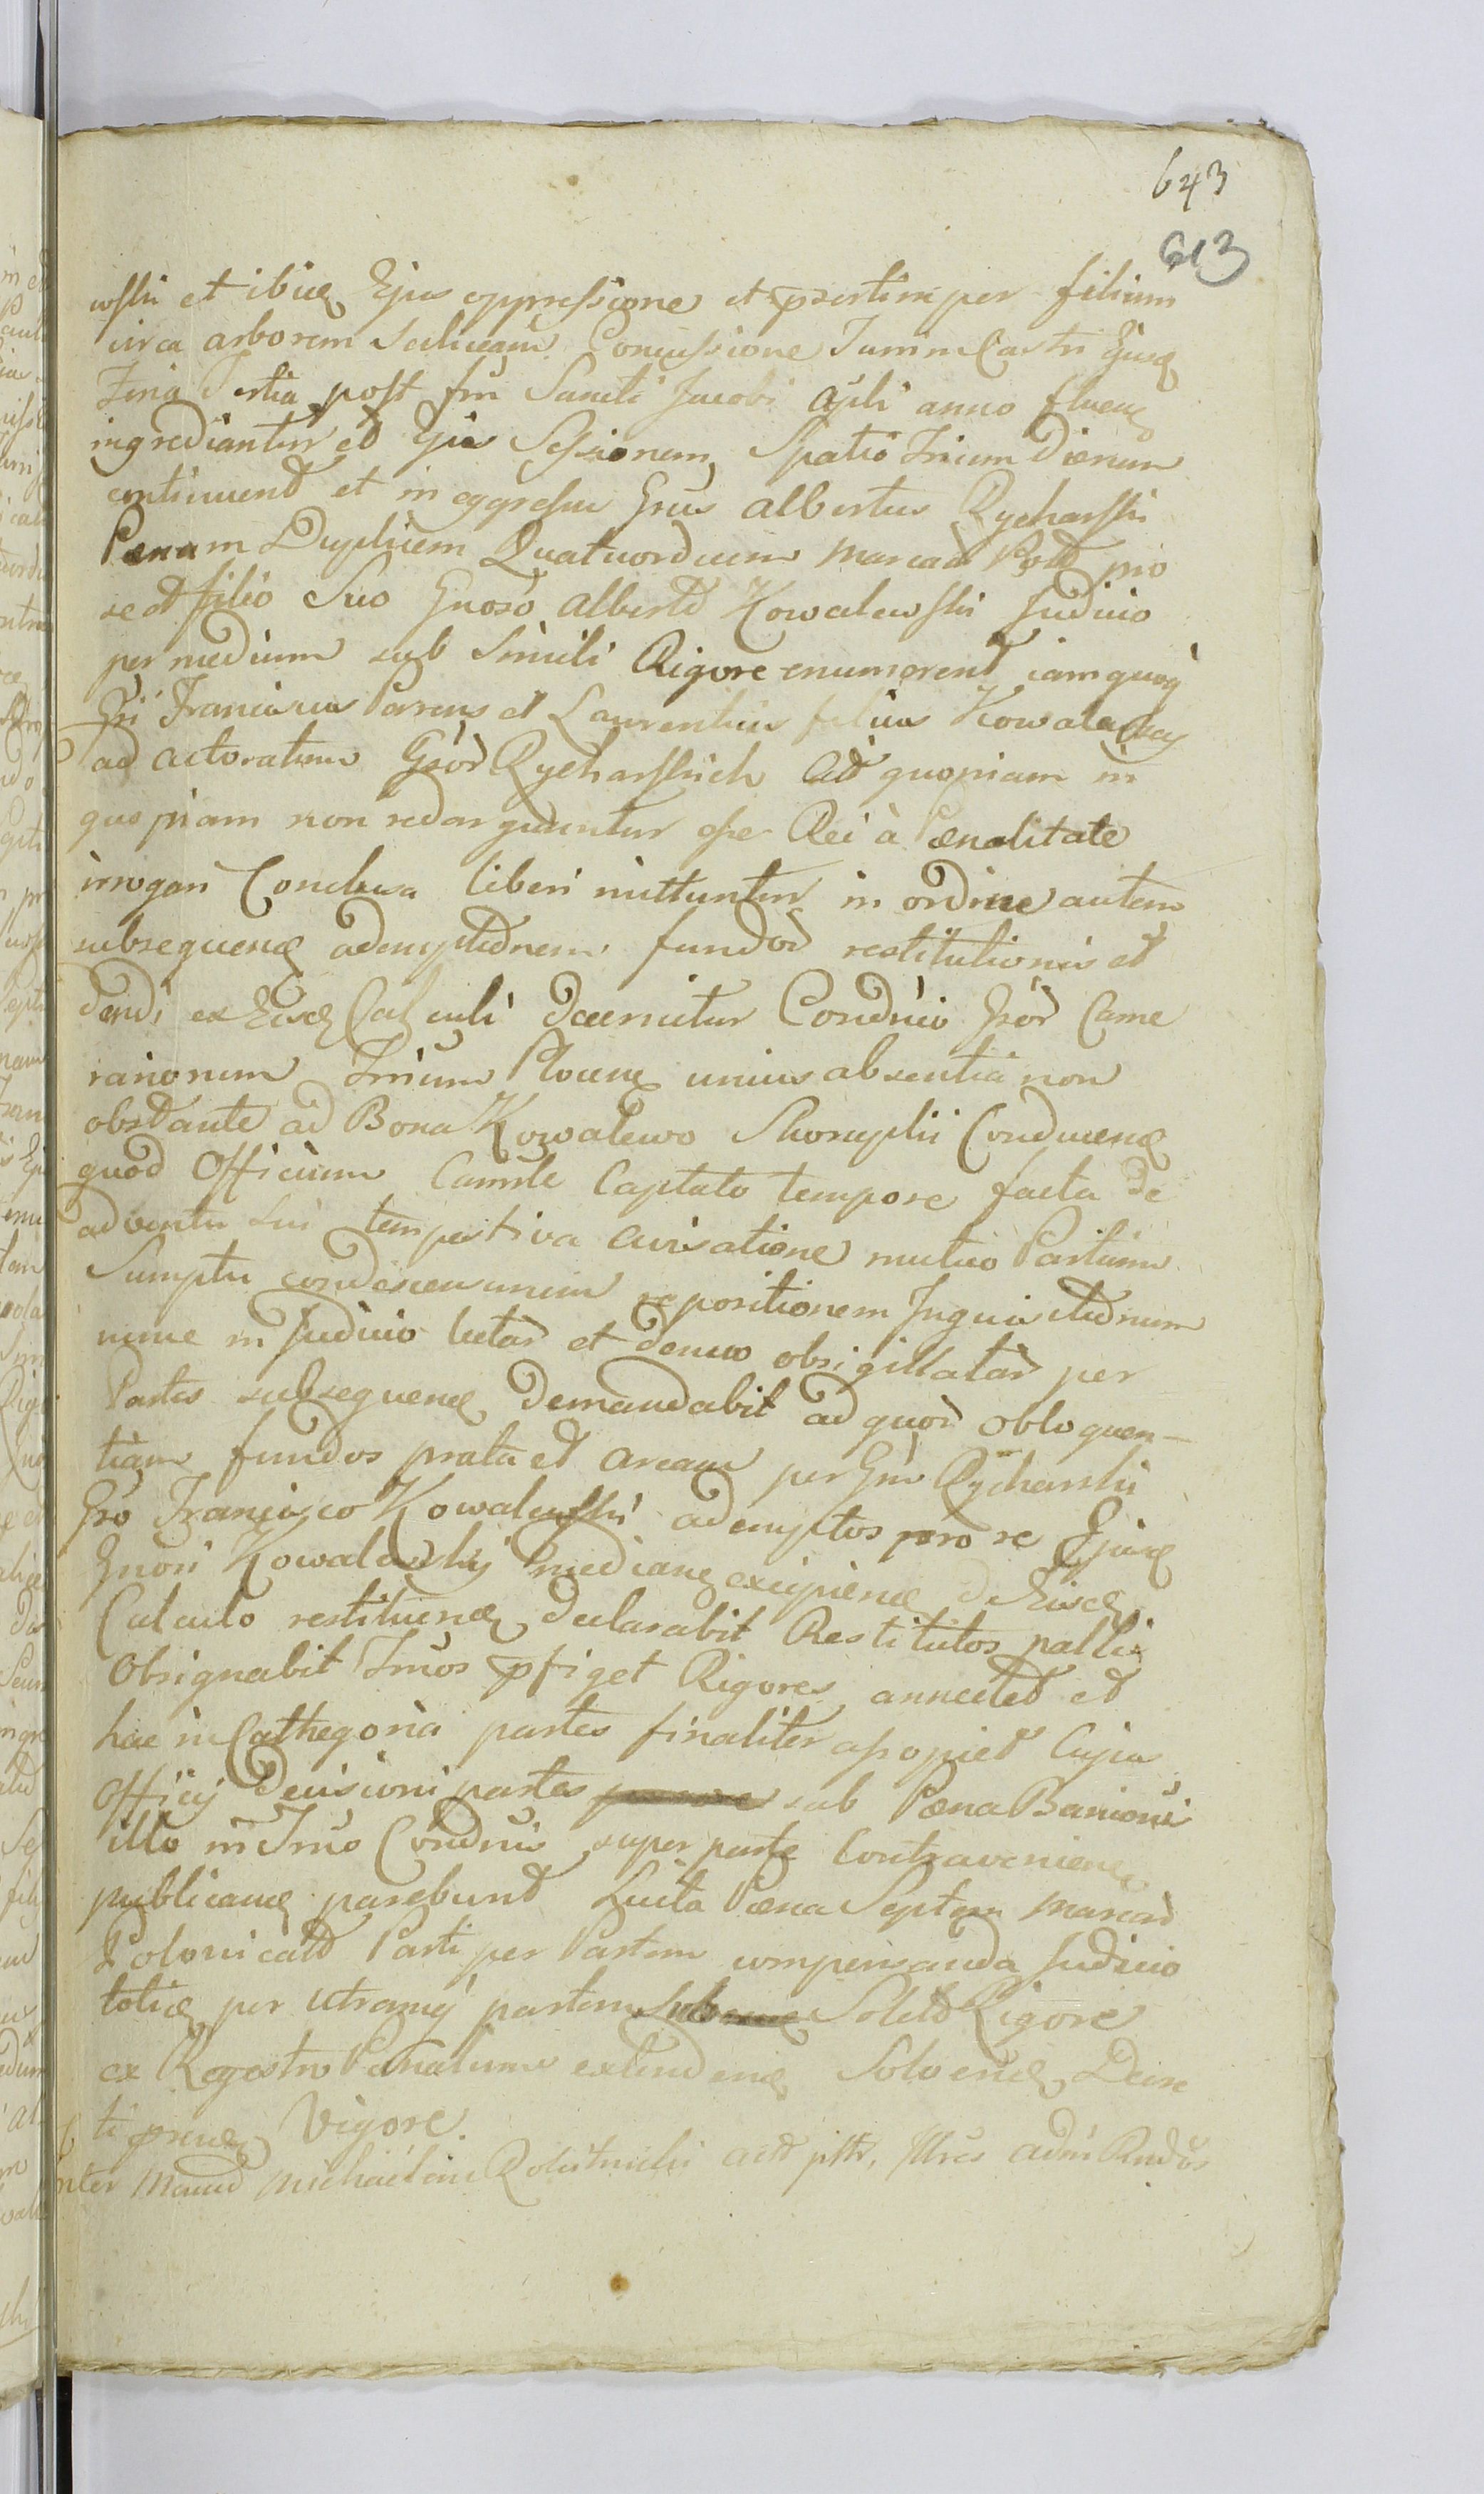 643
613
wski et ibidę Ejus oppressione et prsertim per filium
circa arborem saliceam Concussione Turrim Castri Ejusdę
Feria Tertia post fm Sancti Jacobi Apli anno fluenę
ingrediantur et Ejus Sessionem Spatio Trium Dierum
continuent et in egressu Grsus Albertus Rycharski
Pænam Duplicem Quatuordecim Marcar Polt pro
se et filio Suo Gnoso Alberto Kowalewski Judicio
per medium sub Simili Rigore enumerent iamquoq
Gsi Franciscus Parens et Laurentius filius Kowalewscy
ad actoratum Gsor Rycharskich Ad quopiam in
quopiam non redarguuntur ofse Rei à Pænalitate
irrogari Conclusa liberi mittuntur in ordine autem
subsequenę ademptionem fundor restitutionis et
dandi ex Eisdę Calculi Decernitur Condnio Gsor Came
rariorum Trium Plocenę unius absentia non
obstante ad Bona Kowalewo Skorupki Conducenę
quod Officium Camrle Captato tempore facta de
adventu sui tempestiva avisatione mutuo Partium
Sumptu condescensurum repositionem Inquisitionum
nunc in Judicio lectar et denuo obsigillatar per
Partes subsequenę Demandabit ad quor obloquen-
tiam fundos prata et aream per Gm Rycharski
Gso Francisco Kowalewski ademptos pro se Ejusdę
Gnosi Kowalewskij medianę excipienę de Eisdę
Calculo restituenę declarabit Restitutos palliis
Obsignabit Tmos pfiget Rigores annectet et
hac in Cathegoria partes finaliter asopiet Cujus
Officij Decisioni partes sub Pæna Banionis
illo in Tmo Condnii super parte Contravenienę
publicanę parebunt Luita Pæna Septem Marcar
Polonicalt Parti per Partem compensanda Judicio
totidę per utramq partem Solito Rigore
ex Regestro Pænalium extendenę Solvenę Decre
ti prsenę Vigore.
Inter Mandm Michaelem Rościnski act pttr, Illres Adm Rndos